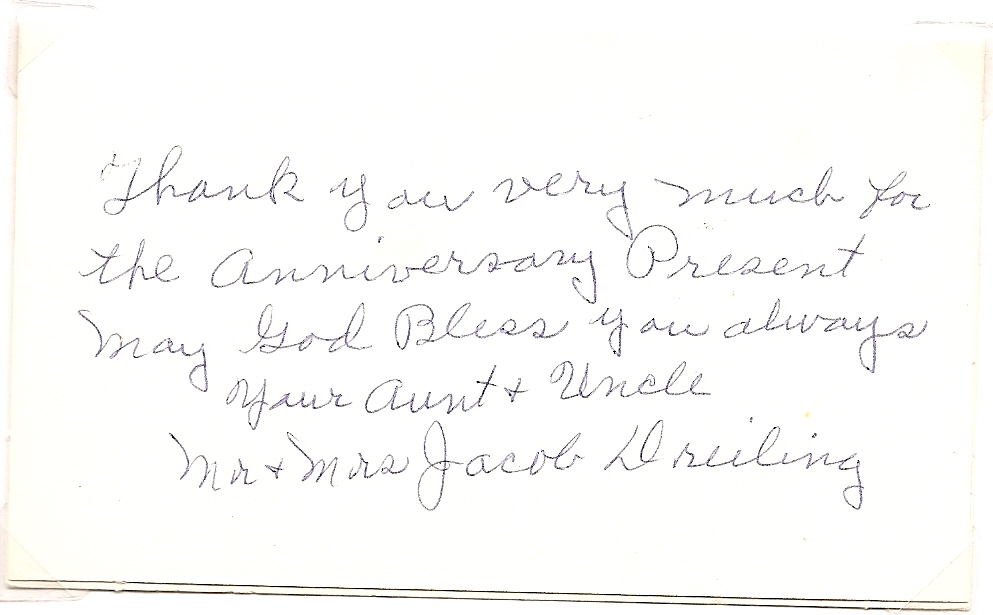 Thank you very much for
the Anniversary Present
May God Bless you always
Your Aunt & Uncle
Mr & Mrs Jacob Dreiling